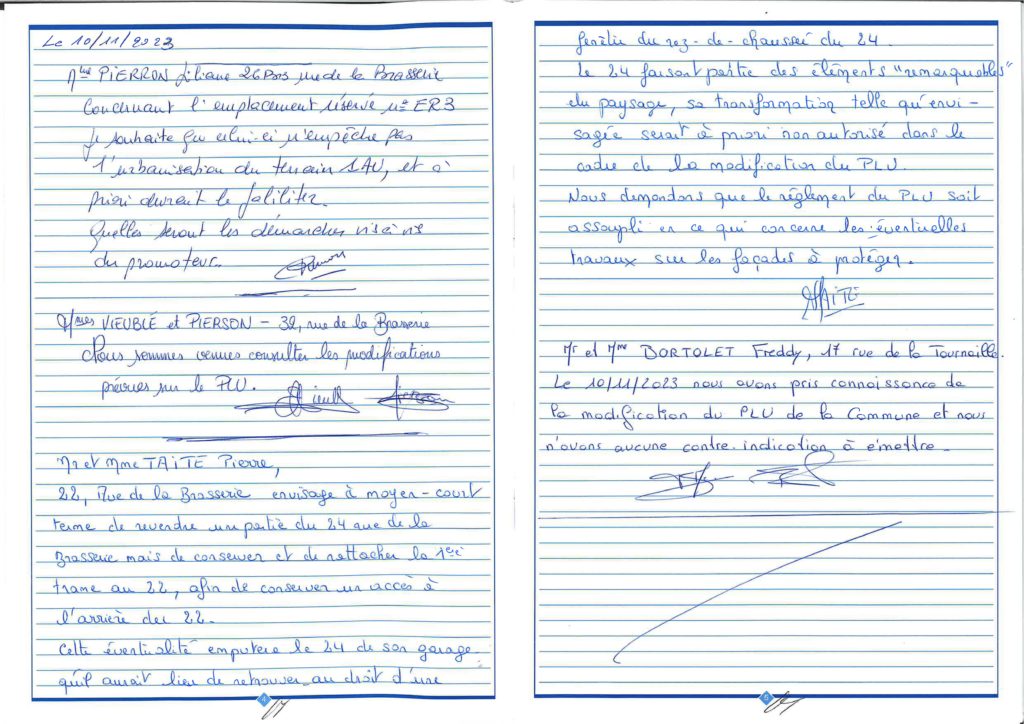 Le 10/11/2023
Mme PIERRON Liliane 26 Bis rue de la Brasserie
Concernant l'emplacement réservé n° ER3
Je souhaite que celui-ci n'empêche pas
l'urbanisation du terrain 1AU, et à
priori devrait le faliliter.
Quelles seront les démarches vis à vis
du promoteur.
Mmes VIEUBLÉ et PIERSON - 32, rue de la Brasserie
Nous sommes venues consulter les modifications
prévues sur le PLU.
Mr et Mme TAITE Pierre,
22, Rue de la Brasserie envisage à moyen-court
terme de revendre un partie du 24 rue de la
Brasserie mais de conserver et de rattacher la 1ère
trame au 22, afin de conserver un accès à
l'arrière du 22.
Cette éventualité emputera le 24 de son garage
qu'il aurait lieu de retrouver au droit d'une
fenêtre du rez-de-chaussé du 24.
Le 24 faisant partie des éléments "remarquables"
du paysage, sa transformation telle qu'envi-
sagée serait à priori non autorisé dans le
cadre de la modification du PLU.
Nous demandons que le règlement du PLU soit
assoupli en ce qui concerne les éventuelles
travaux sur les façades à protéger.
TAITE
Mr et Mme BORTOLET Freddy, 17 rue de la Tournaille.
Le 10/11/2023 nous avons pris connaissance de
la modification du PLU de la Commune et nous
n'avons aucune contre-indication à émettre.